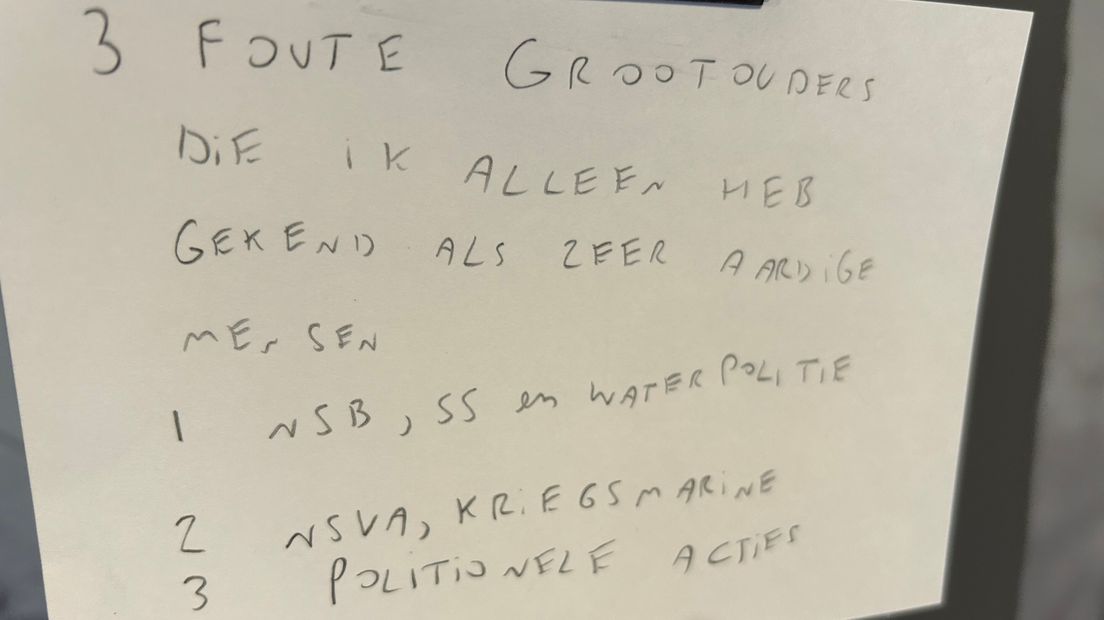 3 FOUTE GROOTOUDERS
DiE iK ALLEEN HEB
GEKEND ALS ZEER AARDiGE
MENSEN
1 NSB, SS en WATERPOLITIE
2 NSVA, KRiEGSMARiNE
3 POLITIONELE ACTiES